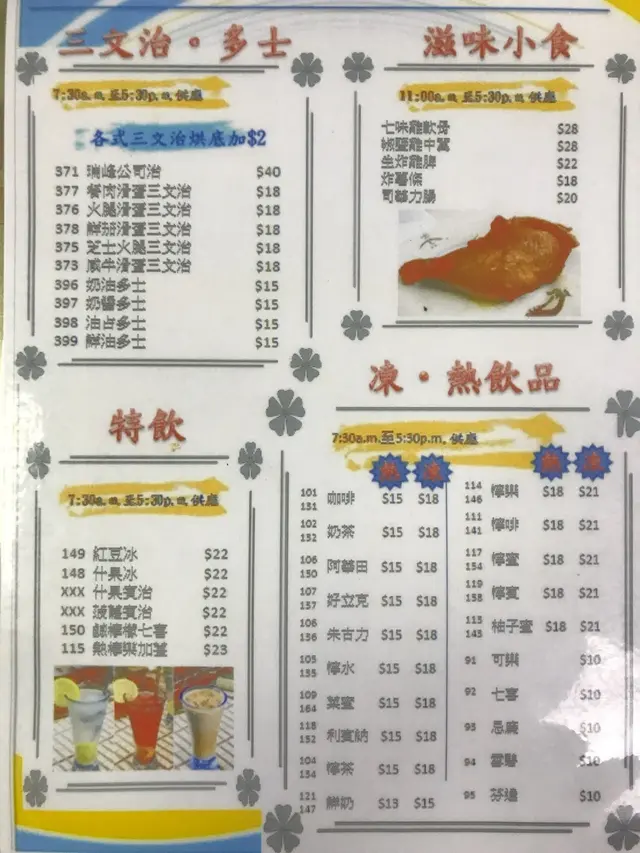 三文治·多士
7:30a.m.至5:30p.m.供應
各式三文治烘底加$2
371 瑞峰公司治 $40
377 餐肉滑蛋三文治 $18
376 火腿滑蛋三文治 $18
378 鮮茄滑蛋三文治 $18
375 芝士火腿三文治 $18
373 咸牛滑蛋三文治 $18
396 奶油多士 $15
397 奶醬多士 $15
398 油占多士 $15
399 鮮油多士 $15
滋味小食
11:00a.m.至5:30p.m.供應
七味雞軟骨 $28
椒鹽雞中翼 $28
生炸雞脾 $22
炸薯條 $18
司華力腸 $20
特飲
7:30a.m.至5:30p.m.供應
149 紅豆冰 $22
148 什果冰 $22
XXX 什果賓治 $22
XXX 菠蘿賓治 $22
150 鹹檸檬七喜 $22
115 熱檸樂加薑 $23
凍·熱飲品
7:30a.m.至5:30p.m.供應
熱 凍
101 131 咖啡 $15 $18
102 132 奶茶 $15 $18
106 150 阿華田 $15 $18
107 137 好立克 $15 $18
106 136 朱古力 $15 $18
105 135 檸水 $15 $18
109 164 菜蜜 $15 $18
118 152 利賓納 $15 $18
104 134 檸茶 $15 $18
121 147 鮮奶 $13 $15
熱 凍
114 146 檸樂 $18 $21
111 141 檸啡 $18 $21
117 154 檸蜜 $18 $21
119 158 檸賓 $18 $21
113 143 柚子蜜 $18 $21
91 可樂 $10
92 七喜 $10
93 忌廉 $10
94 雪碧 $10
95 芬達 $10